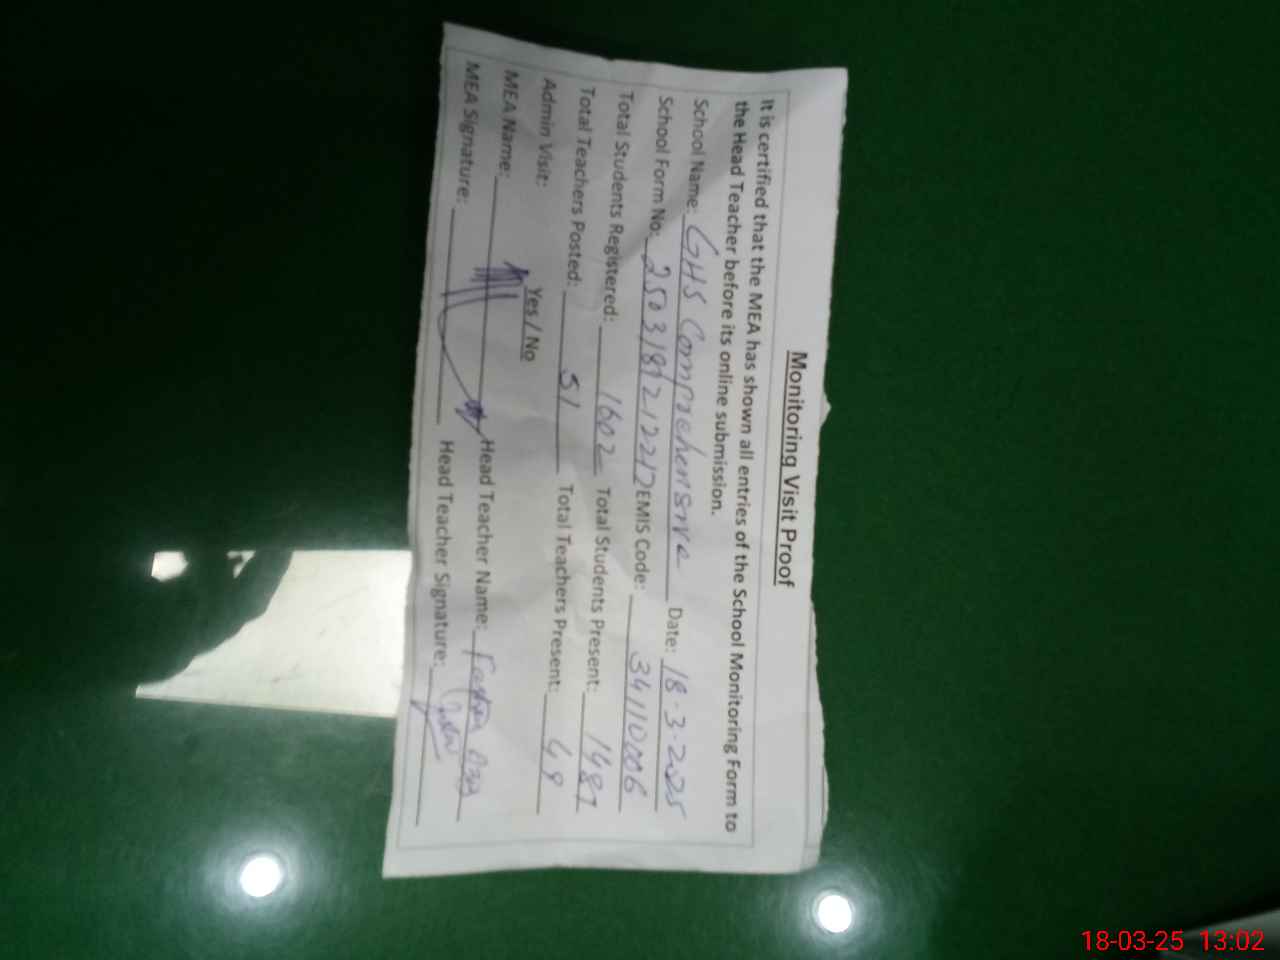 Monitoring Visit Proof
It is certified that the MEA has shown all entries of the School Monitoring Form to
the Head Teacher before its online submission.
School Name: GHS Comprehensive Date: 18-3-2025
School Form No: EMIS Code: 34110006
Total Students Registered: 1602 Total Students Present: 1481
Total Teachers Posted: 51 Total Teachers Present: 49
Admin Visit: Yes / No
MEA Name: Head Teacher Name:
MEA Signature: Head Teacher Signature:
18-03-25 13:02